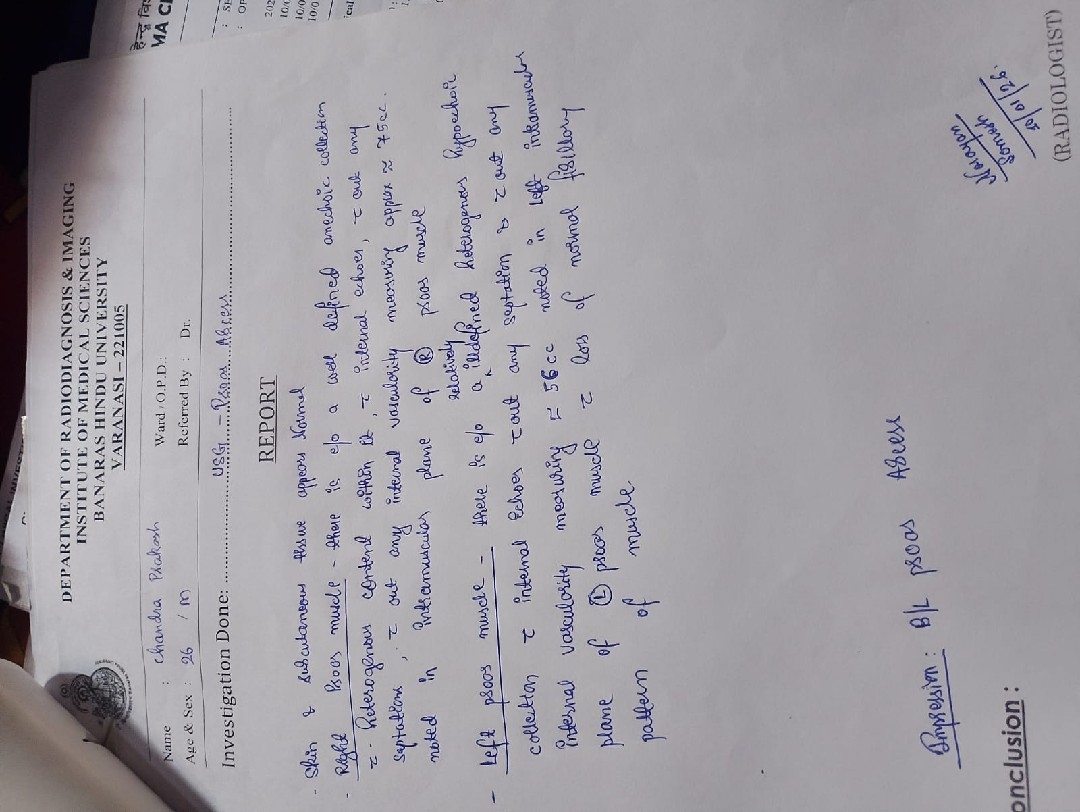 DEPARTMENT OF RADIODIAGNOSIS & IMAGING
INSTITUTE OF MEDICAL SCIENCES
BANARAS HINDU UNIVERSITY
VARANASI – 221005
Name : Chandra Prakash Ward / O.P.D.:
Age & Sex : 26 / M Referred By : Dr.
Investigation Done: USG - Psoas Abcess
REPORT
- Skin & subcutaneous tissue appears Normal
- Right Psoas muscle - there is e/o a well defined anechoic collection
c̄ heterogenous content within it, c̄ internal echoes, c̄ out any
septations, c̄ out any internal vascularity measuring approx ≈ 75cc.
noted in intramuscular plane of Ⓡ psoas muscle
- Left psoas muscle - there is e/o a relatively illdefined heterogenous hypoechoic
collection c̄ internal echoes c̄out any septation & c̄ out any
internal vascularity measuring ≈ 56cc noted in left intramuscular
plane of Ⓛ psoas muscle c̄ loss of normal fibillory
pattern of muscle.
Impression : B/L psoas Abcess
onclusion :
Narayan
30/01/26.
(RADIOLOGIST)
हिन्दू वि
MA C